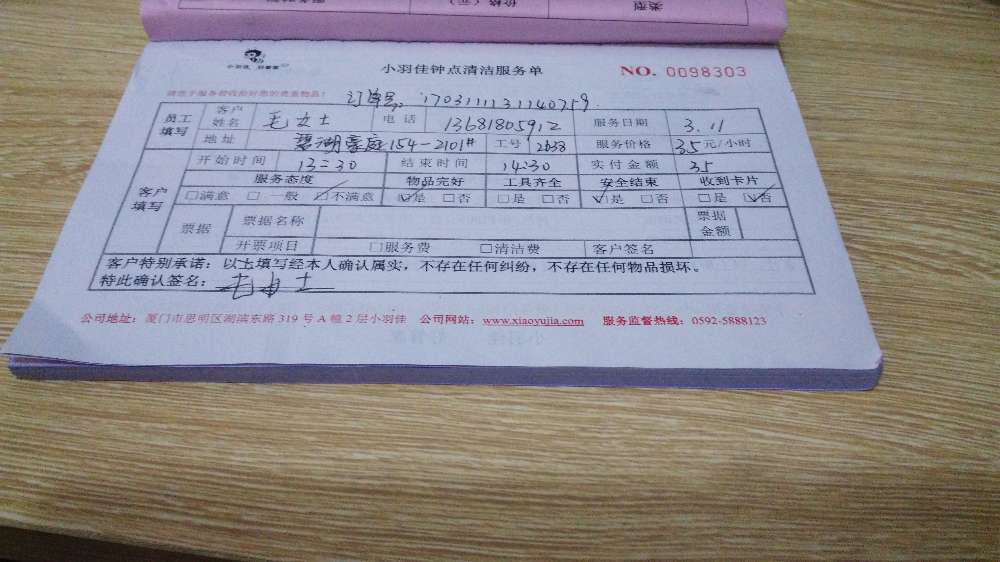 类型
价格（元）
小羽佳 好管家
小羽佳钟点清洁服务单 NO. 0098303
请您于服务前收拾好您的贵重物品！ 订单号: 1703111131140759
员工填写 客户姓名 毛女士 电话 13681805912 服务日期 3.11
地址 碧湖豪庭154-2101# 工号 2038 服务价格 35元/小时
客户填写 开始时间 13:30 结束时间 14:30 实付金额 35
服务态度 物品完好 工具齐全 安全结束 收到卡片
□满意 □一般 ☑不满意 ☑是 □否 □是 □否 ☑是 □否 □是 ☑否
票据 票据名称 票据金额
开票项目 □服务费 □清洁费 客户签名
客户特别承诺：以上填写经本人确认属实，不存在任何纠纷，不存在任何物品损坏。
特此确认签名： 毛女士
公司地址：厦门市思明区湖滨东路319号A幢2层小羽佳 公司网站：www.xiaoyujia.com 服务监督热线：0592-5888123